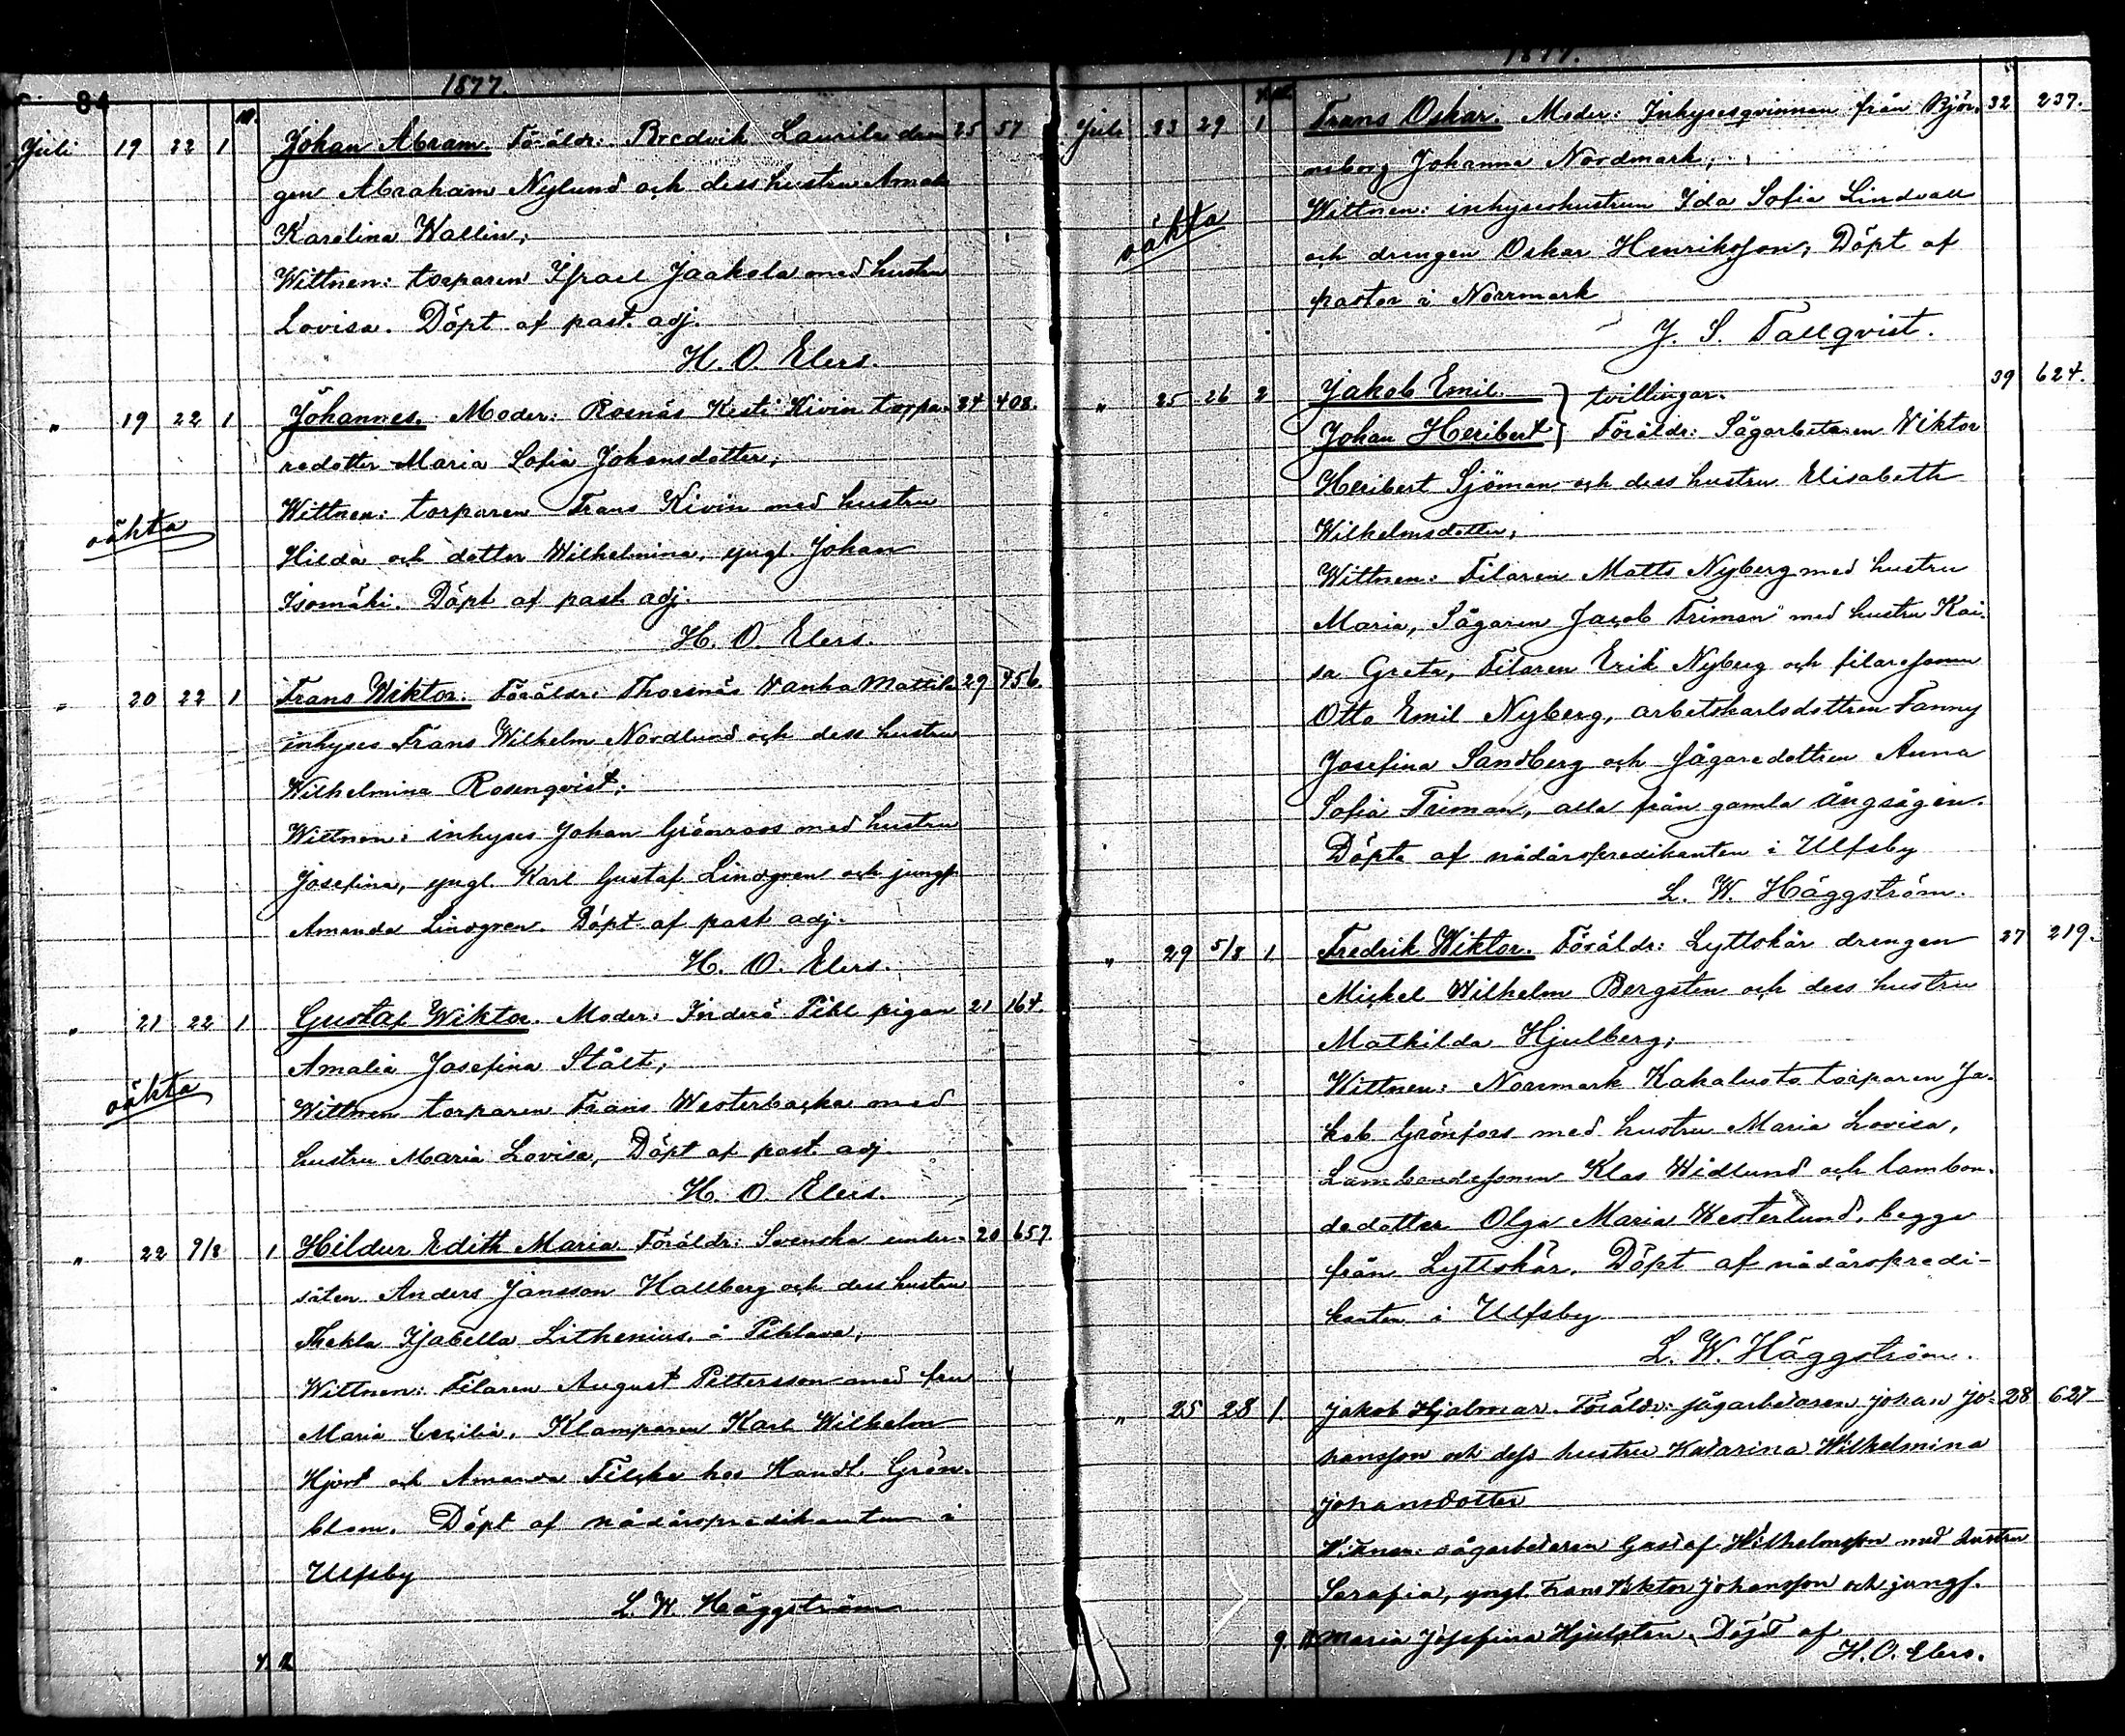 84
1877.
Juli 19 22 1 Johan Abram. Föräldr: Bredvik Laurila dren 25 57
gen Abraham Nylund och dess hustru Amalia
Karolina Wallin;
Wittnen: torparen Israel Jaakola med hustru
Lovisa. Döpt af past. adj.
H. O. Elers.
" 19 22 1 Johannes. Moder: Rosnäs Kesti Kivin torpa- 24 408.
redotter Maria Sofia Johansdotter;
oäkta
Wittnen: torparen Frans Kivin med hustru
Hilda och dotter Wilhelmina, yngl. Johan
Isomäki. Döpt af past adj.
H. O. Elers.
" 20 22 1 Frans Wiktor. Föräldr: Thorsnäs Wanha Mattila 29 456.
inhyses Frans Wilhelm Nordlund och dess hustru
Wilhelmina Rosenqvist;
Wittnen: inhyses Johan Grönroos med hustru
Josefina, yngl. Karl Gustaf Lindgren och jungf.
Amanda Lindgren. Döpt af past adj.
H. O. Elers.
" 21 22 1 Gustaf Wiktor. Moder: Inderö Pihl pigan 21 164.
Amalia Josefina Stålt;
oäkta
Wittnen torparen Frans Westerbacka med
hustru Maria Lovisa, Döpt af past adj.
H. O. Elers.
" 22 9/8 1 Hildur Edith Maria Föräldr: Svenska under- 20 657.
såten Anders Jansson Hallberg och dess hustru
Thekla Isabella Lithenius, å Pihlava;
Wittnen: Filaren August Pettersson med fru
Maria Cecilia, Klamparen Karl Wilhelm
Hjort och Amanda hos Handl. Grön-
blom. Döpt af nådårspredikanten i
Ulfsby
L. W. Häggström
1877.
Juli 23 29 1 Frans Oskar. Moder: Inhysesqvinnan från Björ- 32 237.
neborg Johanna Nordmark;
oäkta
Wittnen: inhyseshustrun Ida Sofia Lindvall
och drengen Oskar Henriksson, Döpt af
pastor i Norrmark
J. S. Tallqvist.
" 25 26 2 Jakob Emil. } tvillingar. 39 624.
Johan Heribert } Föräldr: Sågarbetaren Wiktor
Heribert Sjöman och dess hustru Elisabeth
Wilhelmsdotter;
Wittnen: Filaren Matts Nyberg med hustru
Maria, Sågaren Jacob Friman med hustru Kai-
sa Greta, Filaren Erik Nyberg och filaresonen
Otto Emil Nyberg, arbetskarlsdottren Fanny
Josefina Sandberg och sågaredottren Anna
Sofia Friman, alla från gamla Ångsågen.
Döpte af nådårspredikanten i Ulfsby
L. W. Häggström.
" 29 5/8 1 Fredrik Wiktor. Föräldr: Lyttskär drengen 27 219.
Mickel Wilhelm Bergsten och dess hustru
Mathilda Hjulberg;
Wittnen: Norrmark Kahaluoto torparen Ja-
kob Grönfors med hustru Maria Lovisa,
Lambondesonen Klas Widlund och lambon-
dedotter Olga Maria Westerlund, begge
från Lyttskär. Döpt af nådårspredi-
kanten i Ulfsby
L. W. Häggström.
" 25 28 1 Jakob Hjalmar. Föräldr: sågarbetaren Johan Jo- 28 627
hansson och dess hustru Katarina Wilhelmina
Johansdotter
Wittnen: sågarbetaren Gustaf Wilhelmsson med hustru
Serafia, yngl. Frans Viktor Johansson och jungf.
Maria Josefina Hjulsten, Döpt af
H. O. Elers.